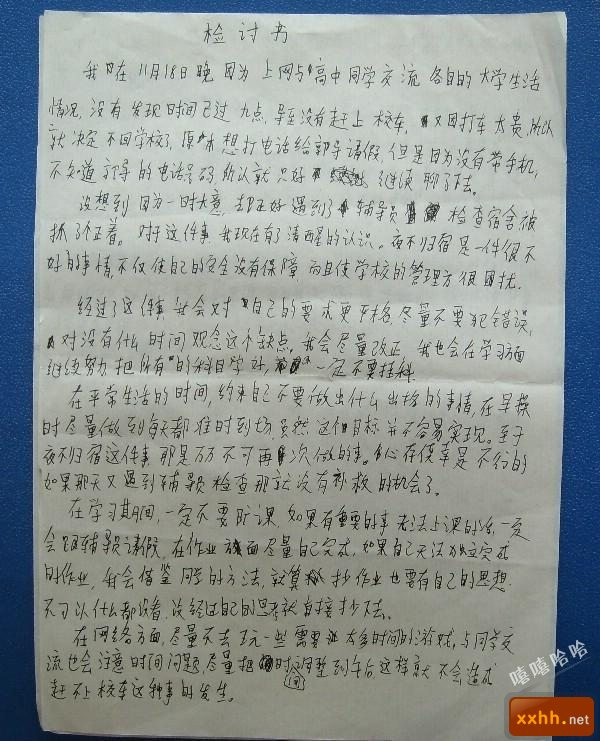 检讨书
我在11月18日晚因为上网与高中同学交流各自的大学生活
情况,没有发现时间已过九点,导至没有赶上校车,又因打车太贵,所以
就决定不回学校了,原本想打电话给辅导请假,但是因为没有带手机,
不知道辅导的电话号码,所以就只好继续聊了下去。
没想到因为一时大意,却正好遇到了辅导员检查宿舍被
抓了个正着。对于这件事,我现在有了清醒的认识。夜不归宿是一件很不
好的事情,不仅使自己的安全没有保障,而且使学校的管理方很困扰。
经过了这件事,我会对自己的要求更严格,尽量不要犯错误,
对没有什么时间观念这个缺点,我会尽量改正,我也会在学习方面
继续努力把所有的科目学好,一定不要挂科
在平常生活的时间,约束自己不要做出什么出格的事情,在早操
时尽量做到每天都准时到场,虽然这个目标并不容易实现。至于
夜不归宿这件事,那是万万不可再次做的事。心存侥幸是不行的
如果那天又遇到辅导员检查那就没有补救的机会了。
在学习其间,一定不要旷课,如果有重要的事无法上课的话,一定
会跟辅导员请假,在作业方面尽量自己完成,如果自己无法独立完成
的作业,我会借鉴同学的方法,就算抄作业也要有自己的思想
不可以什么都没看,没经过自己的思考就直接抄下去。
在网络方面,尽量不去玩一些需要太多时间的游戏,与同学交
流也会注意时间问题,尽量把时间调整到午后,这样就不会造成
赶不上校车这种事的发生。
嘻嘻哈哈
xxhh.net